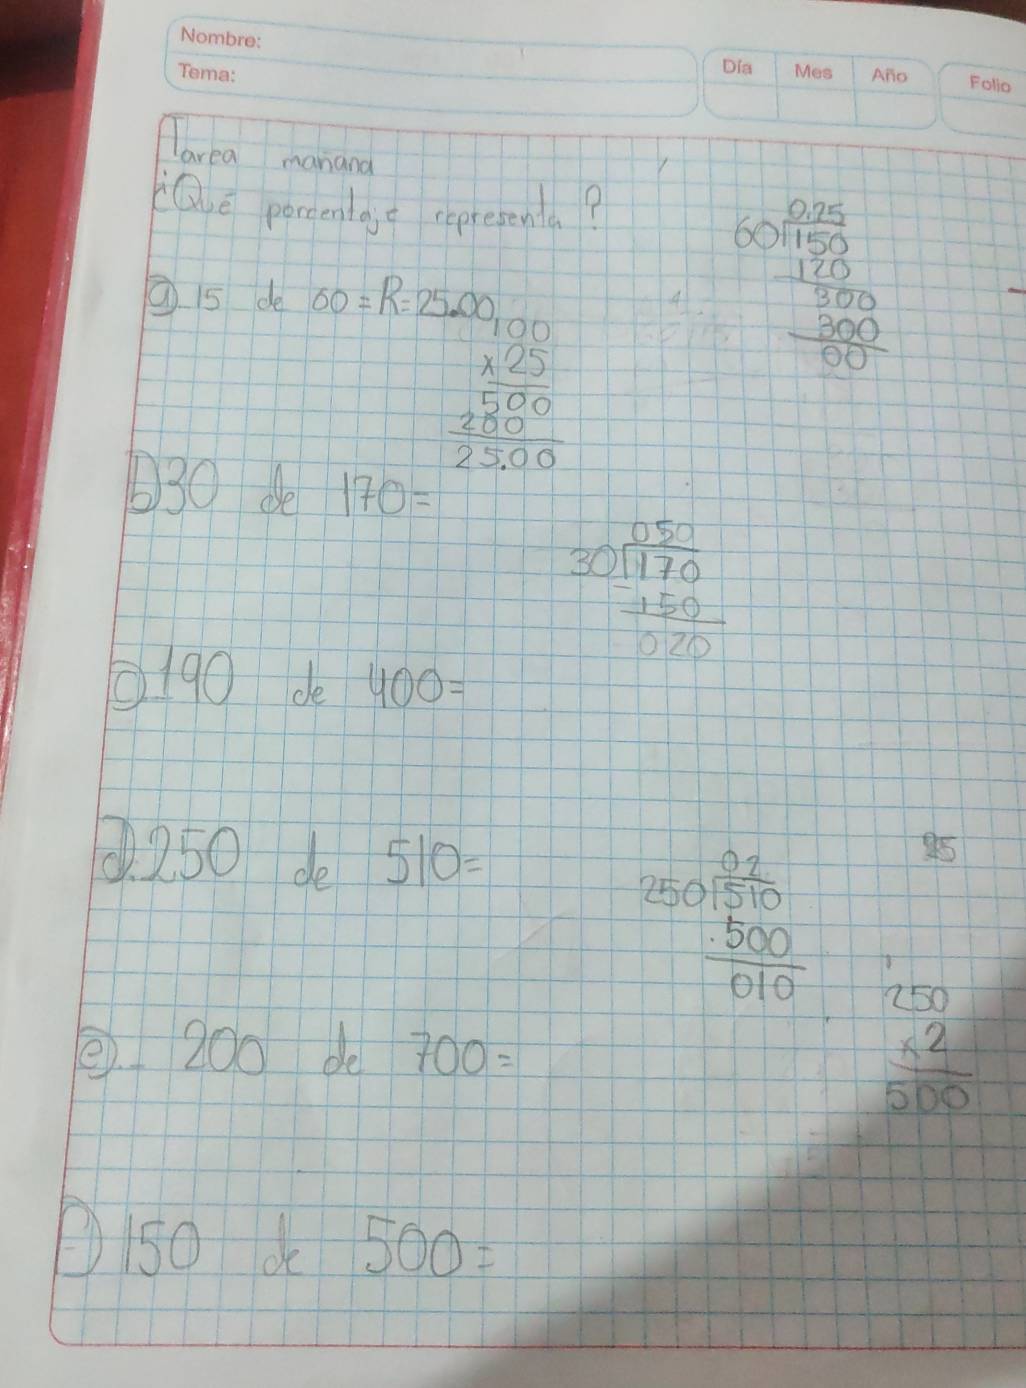 Nombre:
Tema:
Día Mes Año Folio
Tarea mañana
¿Qué porcentaje representa?
0.25
60 150
120
300
300
00
a) 15 de 60 = R= 25.00
100
x 25
500
200
25.00
b) 30 de 170=
050
30 170
- 150
020
c) 190 de 400=
d) 250 de 510=
02
250 510
500
010
250
x 2
500
e) 200 de 700=
f) 150 de 500=